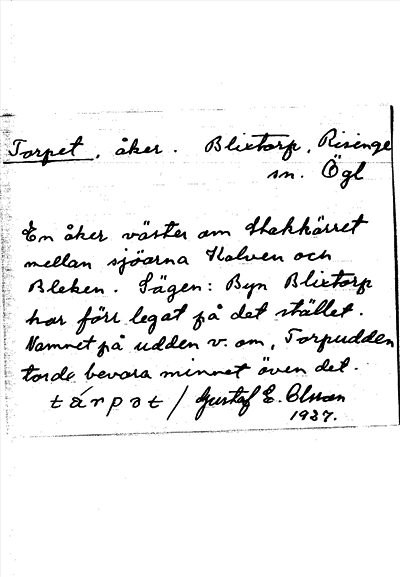 Torpet, åker. Blixtorp, Risinge
sn. Ögl
En åker väster om Stakkärret
mellan sjöarna Kalven och
Bleken. Sägen: Byn Blixtorp
har förr legat på det stället.
Namnet på udden v. om, Torpudden
torde bevara minnet även det.
tárpət / Gustaf E. Olsson
1937.